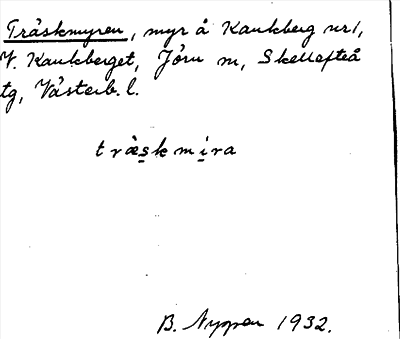 Träskmyren, myr å Kankberg nr 1,
V. Kankberget, Jörn m, Skellefteå
tg, Västerb. l.
träskmira
B. Nygren 1932.